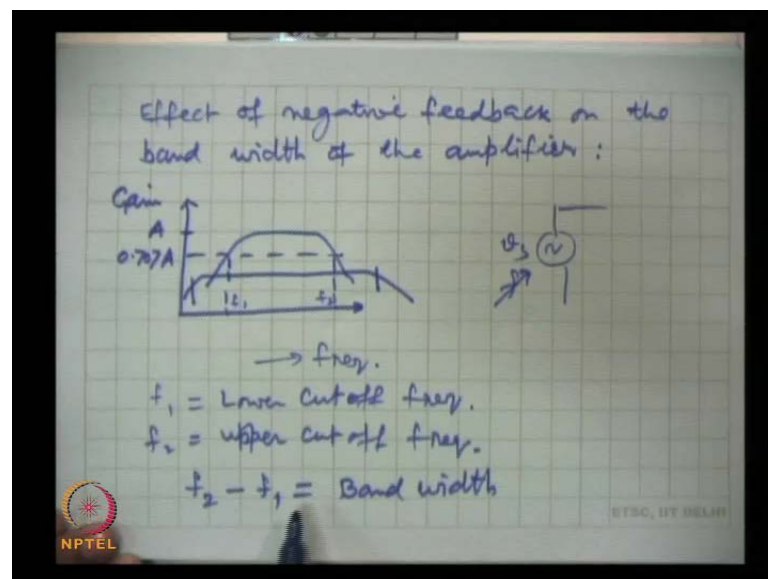 Effect of negative feedback on the
band width of the amplifier :
Gain
A
0.707A
f₁
f₂
υₛ
→ freq.
f₁ = Lower Cut off freq.
f₂ = upper cut off freq.
f₂ - f₁ = Band width
ETSC, IIT DELHI
NPTEL